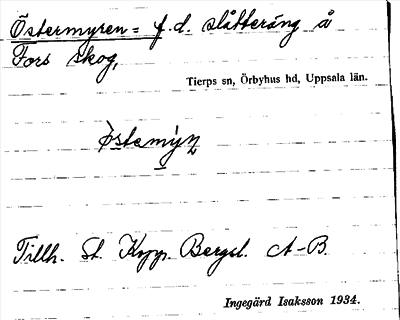 Östermyren = f.d. slåtteräng å
Fors skog,
Tierps sn, Örbyhus hd, Uppsala län.
Tillh. St. Kopp. Bergsl. A-B.
Ingegärd Isaksson 1934.